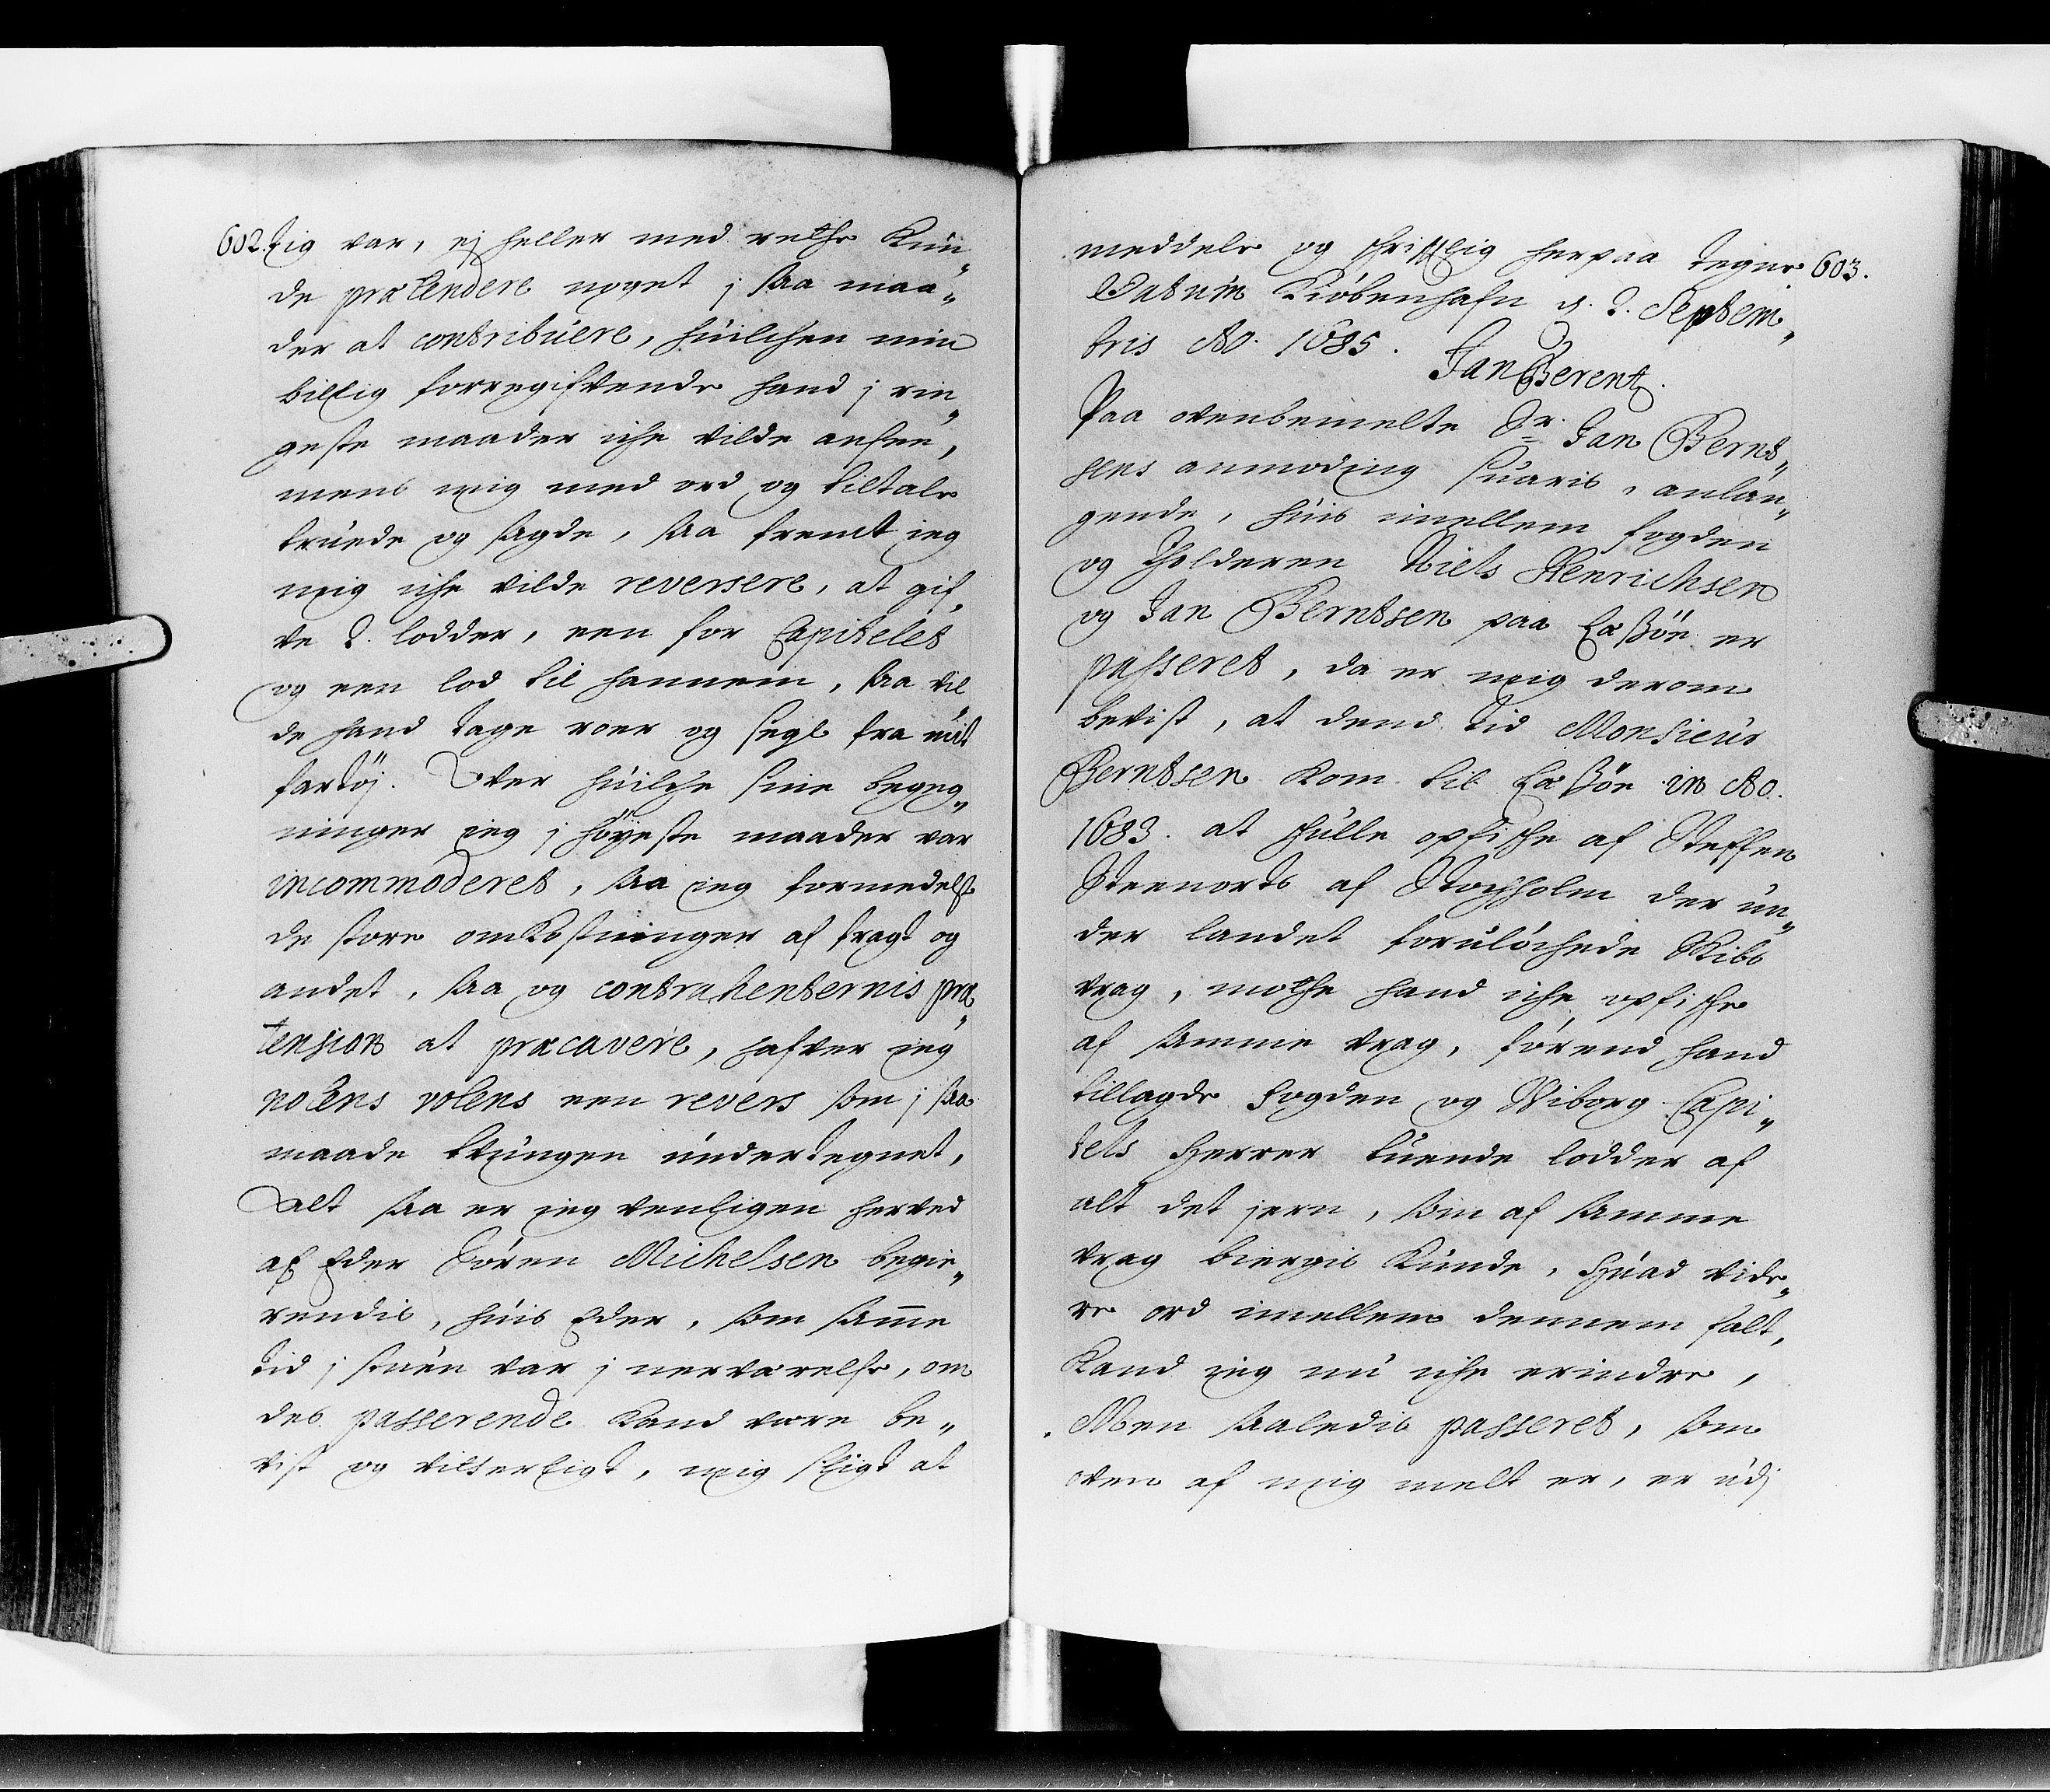 602. tig var, ej heller med rette kun„
de prætendere noget j saa maa„
der at contribuere, huilchen min
billig foregifvende hand j rin„
geste maader iche vilde ansee,
mens mig med ord og tiltale
truede og sagde, saa fremt jeg
mig iche vilde reversere, at gif„
ve 2. lodder, een for Capitelet
og een lod til hannem, saa vil„
de hand tage roer og segl fra mit
fartöj. Over huilche sine begeg„
ninger jeg j höyeste maader var
incommoderet, saa jeg formedelst
de store omkostninger af fragt og
andet, saa og contrahenternis præ„
tension at præcavere, hafver jeg
nolens volens een revers som j saa
maade tvungen undertegnet,
alt saa er jeg venligen herved
af Eder Sören Michelsen begie„
rendis, huis Eder, som samme
tid j stuen var j nerværelse, om
des passerende kand være be„
vist og vitterligt, mig sligt at
603.
meddele og skriftlig herpaa tegne
Datum Kiöbenhafn d. 2. Septem„
bris Ao. 1685. Jan Berent.
Paa ovenbemelte Sr. Jan Bernt„
sens anmoding suaris, anlan„
gende, huis imellem fogden
og Tholderen Niels Henrichsen
og Jan Berntsen paa Læssöe er
passeret, da er mig derom
bevist, at dend tid Monsieur
Berntsen kom til Læssöe in Ao.
1683. at skulle opfische af Steffen
Steenorts af Stockholm der un„
der landet foruløchede Skibs
vrag, motte hand iche opfische
af samme vrag, förend hand
tillagde Fogden og Wiborg Capi„
tels Herrer tuende lodder af
alt det jern, som af samme
vrag biergis kunde, huad vide„
re ord imellem dennem falt,
kand jeg nu iche erindre,
Men saaledis passeret, som
oven af mig melt er, er udj